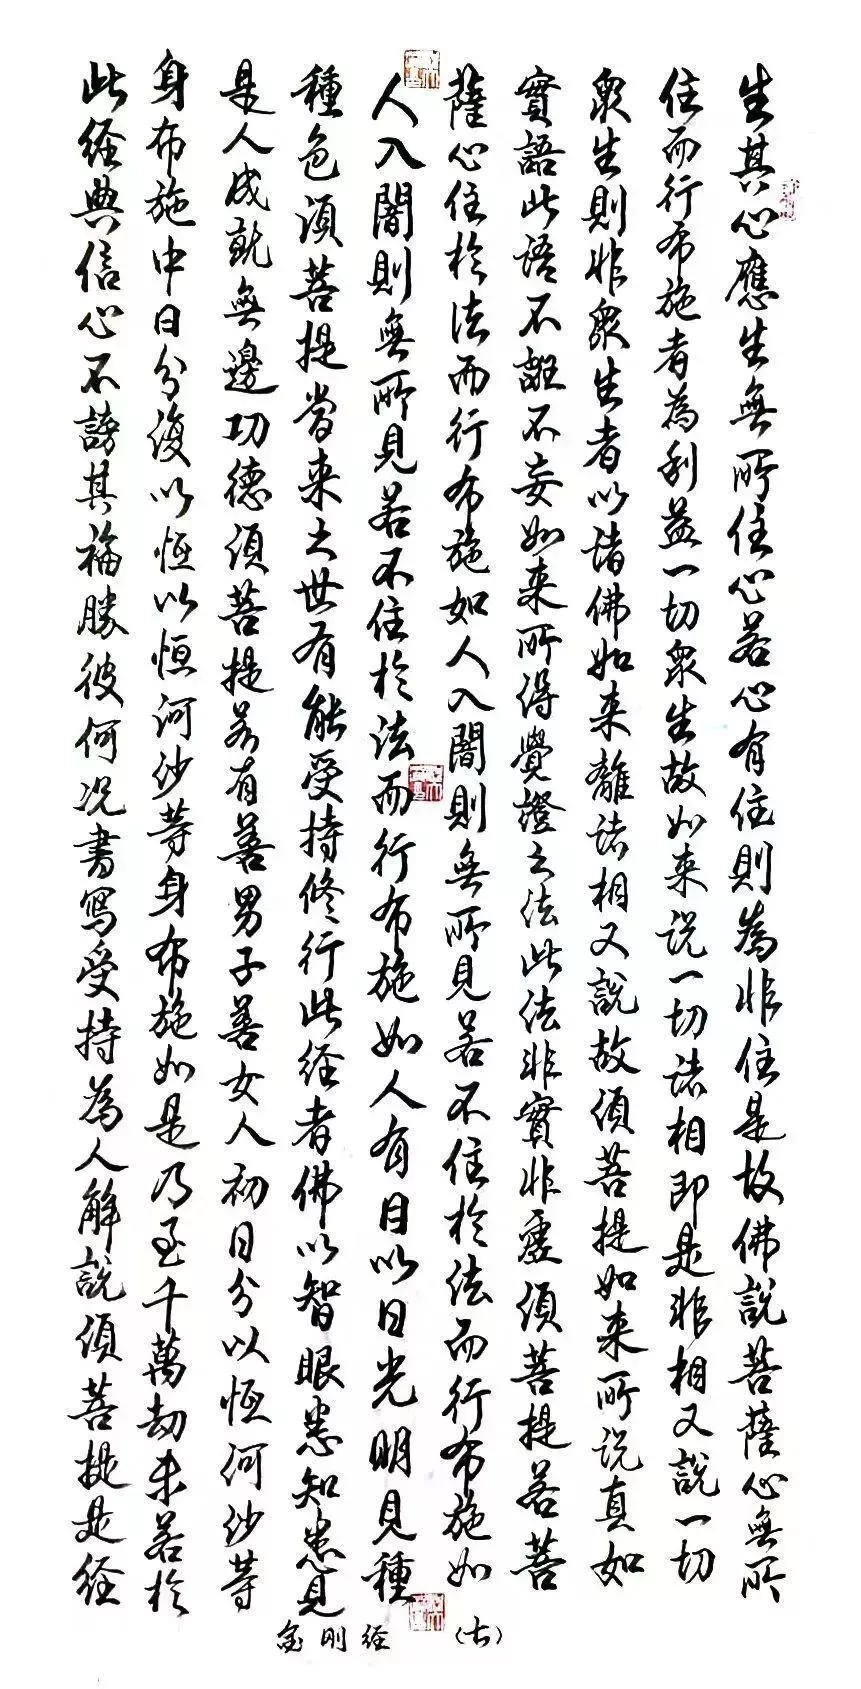 生其心應生無所住心若心有住則為非住是故佛說菩薩心無所
住而行布施者為利益一切眾生故如来说一切諸相即是非相又說一切
眾生則非眾生者以諸佛如来離諸相又說故須菩提如来所说真如
實語此語不誑不妄如来所得覺證之法此法非實非虛須菩提若菩
薩心住於法而行布施如人入闇則無所見若不住於法而行布施如
人入闇則無所見若不住於法而行布施如人有目以日光明見種
種色須菩提當来之世有能受持修行此経者佛以智眼悉知悉見
是人成就無邊功德須菩提若有善男子善女人初日分以恒河沙等
身布施中日分復以恒以恒河沙等身布施如是乃至千萬劫未若於
此経典信心不謗其福勝彼何况書寫受持為人解說須菩提是経
金刚経 （七）